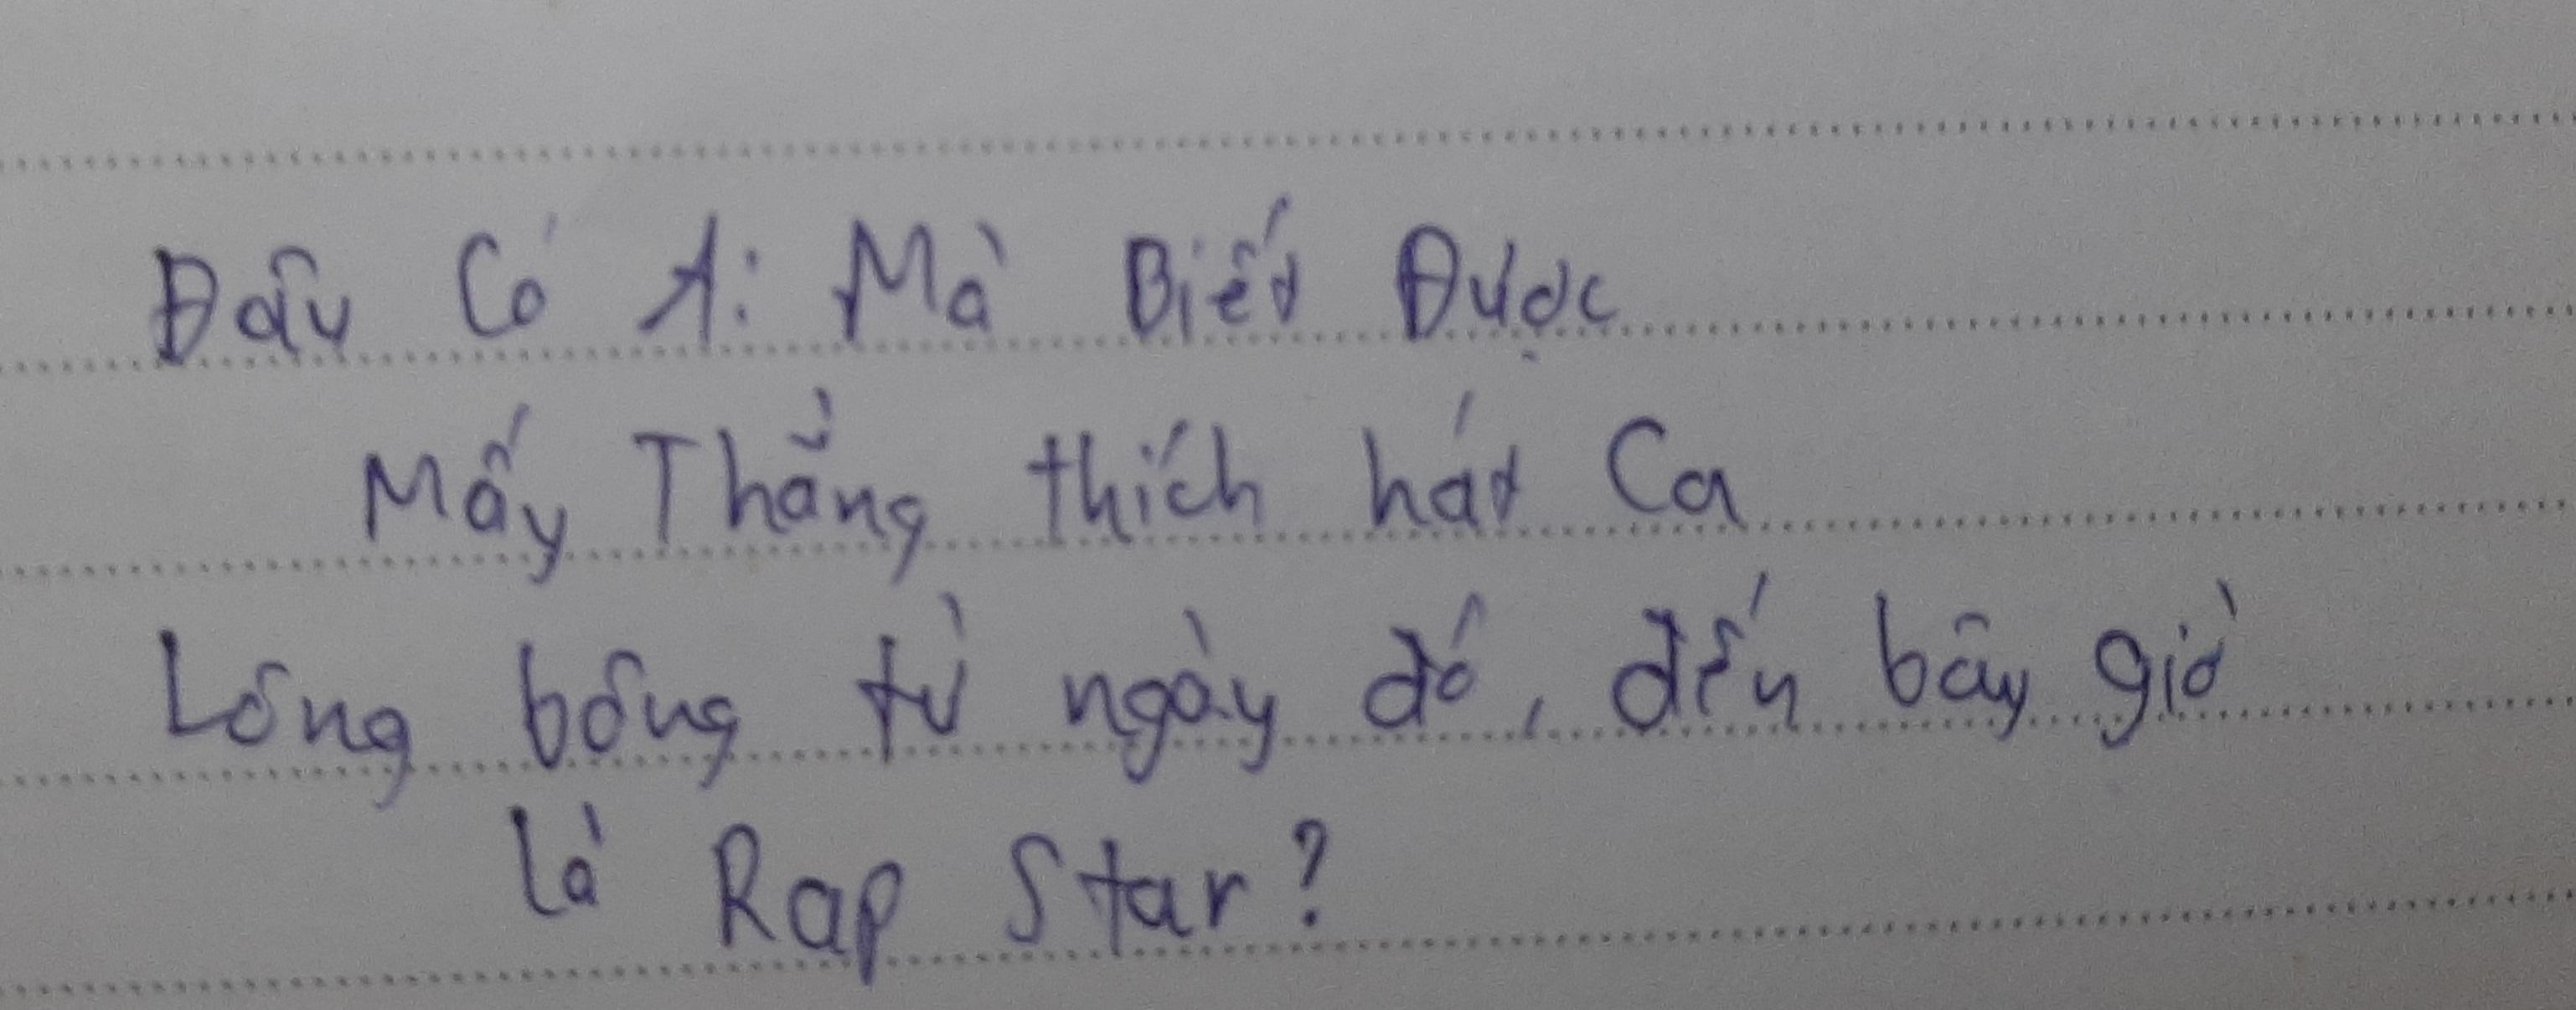 Đâu Có Ai Mà Biết Được
Mấy Thằng thích hát Ca
Lông bông từ ngày đó, đến bây giờ
là Rap Star?